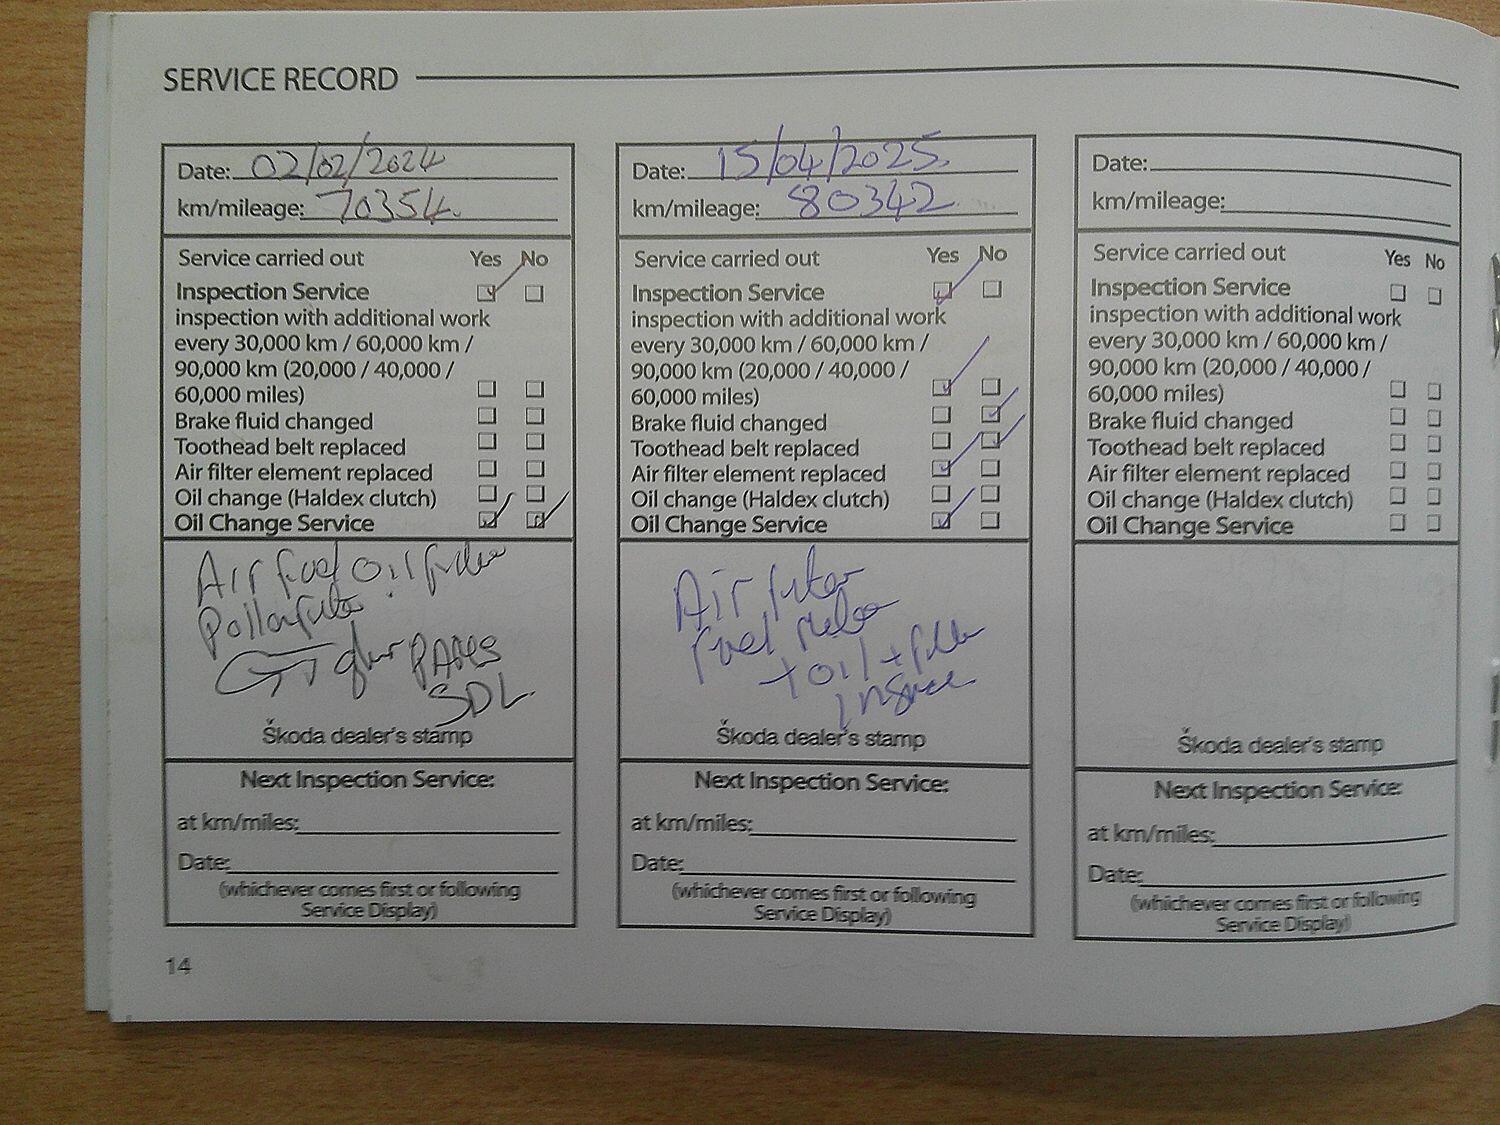 SERVICE RECORD
Date: 02/02/2024
km/mileage: 70354
Service carried out Yes No
Inspection Service
inspection with additional work
every 30,000 km / 60,000 km /
90,000 km (20,000 / 40,000 /
60,000 miles)
Brake fluid changed
Toothead belt replaced
Air filter element replaced
Oil change (Haldex clutch)
Oil Change Service
Air fuel oil filter
Pollen filter
PADS
SDL
Škoda dealer's stamp
Next Inspection Service:
at km/miles:
Date:
(whichever comes first or following
Service Display)
Date: 15/04/2025
km/mileage: 80342
Service carried out Yes No
Inspection Service
inspection with additional work
every 30,000 km / 60,000 km /
90,000 km (20,000 / 40,000 /
60,000 miles)
Brake fluid changed
Toothead belt replaced
Air filter element replaced
Oil change (Haldex clutch)
Oil Change Service
Air filter
fuel filter
+ oil + filter
Škoda dealer's stamp
Next Inspection Service:
at km/miles:
Date:
(whichever comes first or following
Service Display)
Date:
km/mileage:
Service carried out Yes No
Inspection Service
inspection with additional work
every 30,000 km / 60,000 km /
90,000 km (20,000 / 40,000 /
60,000 miles)
Brake fluid changed
Toothead belt replaced
Air filter element replaced
Oil change (Haldex clutch)
Oil Change Service
Škoda dealer's stamp
Next Inspection Service:
at km/miles:
Date:
(whichever comes first or following
Service Display)
14